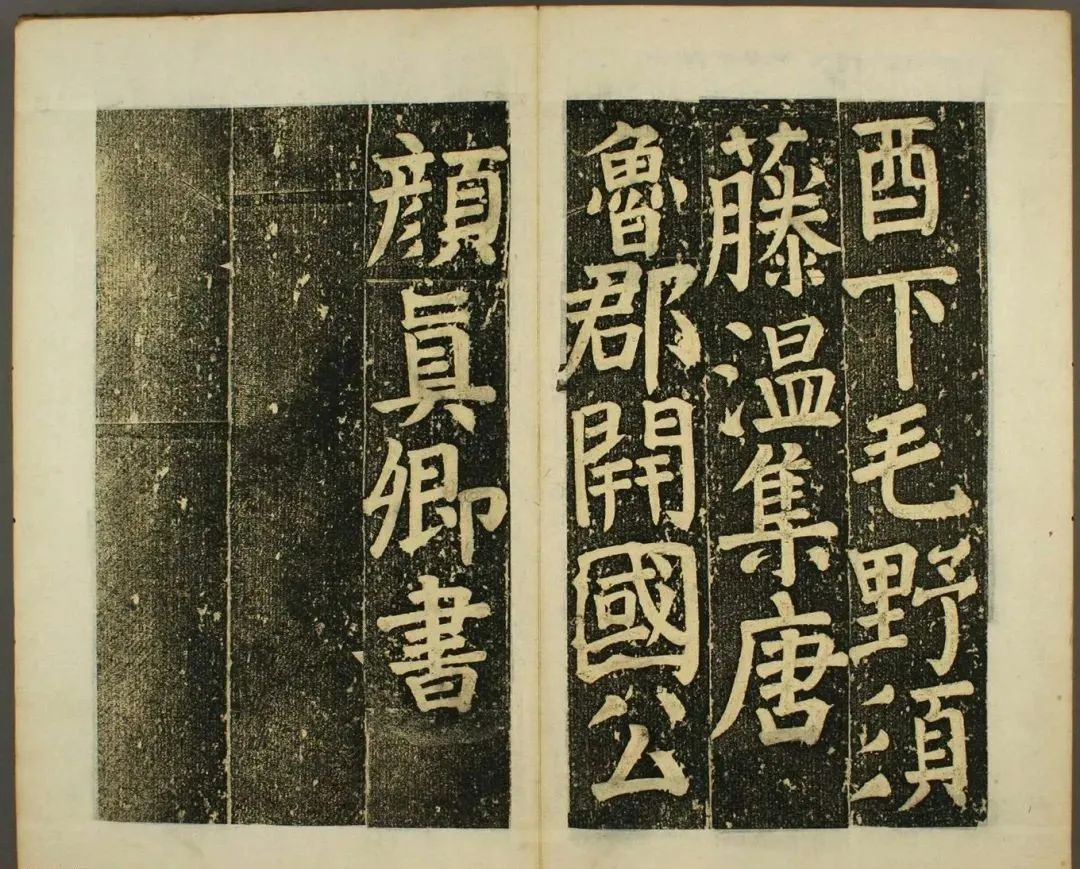 酉下毛野須
藤温集唐
魯郡開國公
顔眞卿書